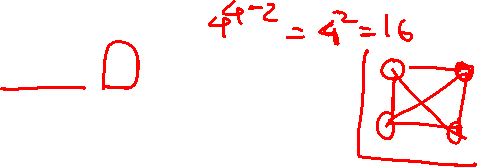 4^{4-2} = 4^2 = 16